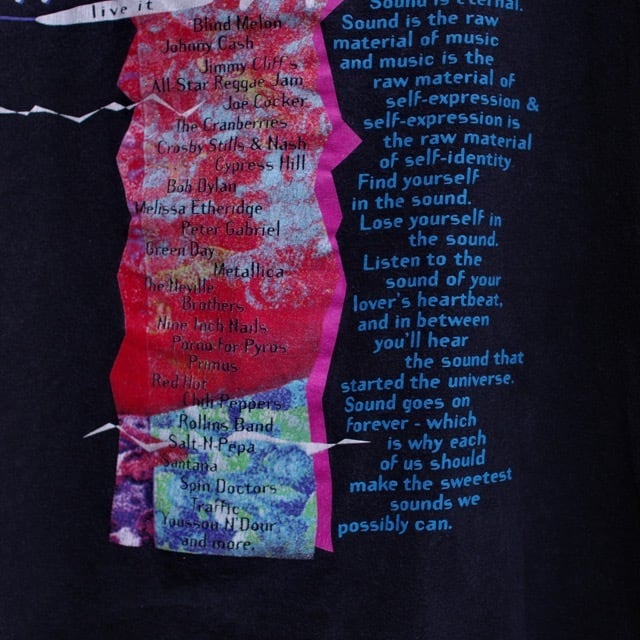 live it
Blind Melon
Johnny Cash
Jimmy Cliff's
All-Star Reggae Jam
Joe Cocker
The Cranberries
Crosby Stills & Nash
Cypress Hill
Bob Dylan
Melissa Etheridge
Peter Gabriel
Green Day
Metallica
The Neville
Brothers
Nine Inch Nails
Porno for Pyros
Primus
Red Hot
Chili Peppers
Rollins Band
Salt-N-Pepa
Santana
Spin Doctors
Traffic
Youssou N'Dour
and more.
Sound is eternal.
Sound is the raw
material of music
and music is the
raw material of
self-expression &
self-expression is
the raw material
of self-identity
Find yourself
in the sound.
Lose yourself in
the sound.
Listen to the
sound of your
lover's heartbeat,
and in between
you'll hear
the sound that
started the universe.
Sound goes on
forever - which
is why each
of us should
make the sweetest
sounds we
possibly can.